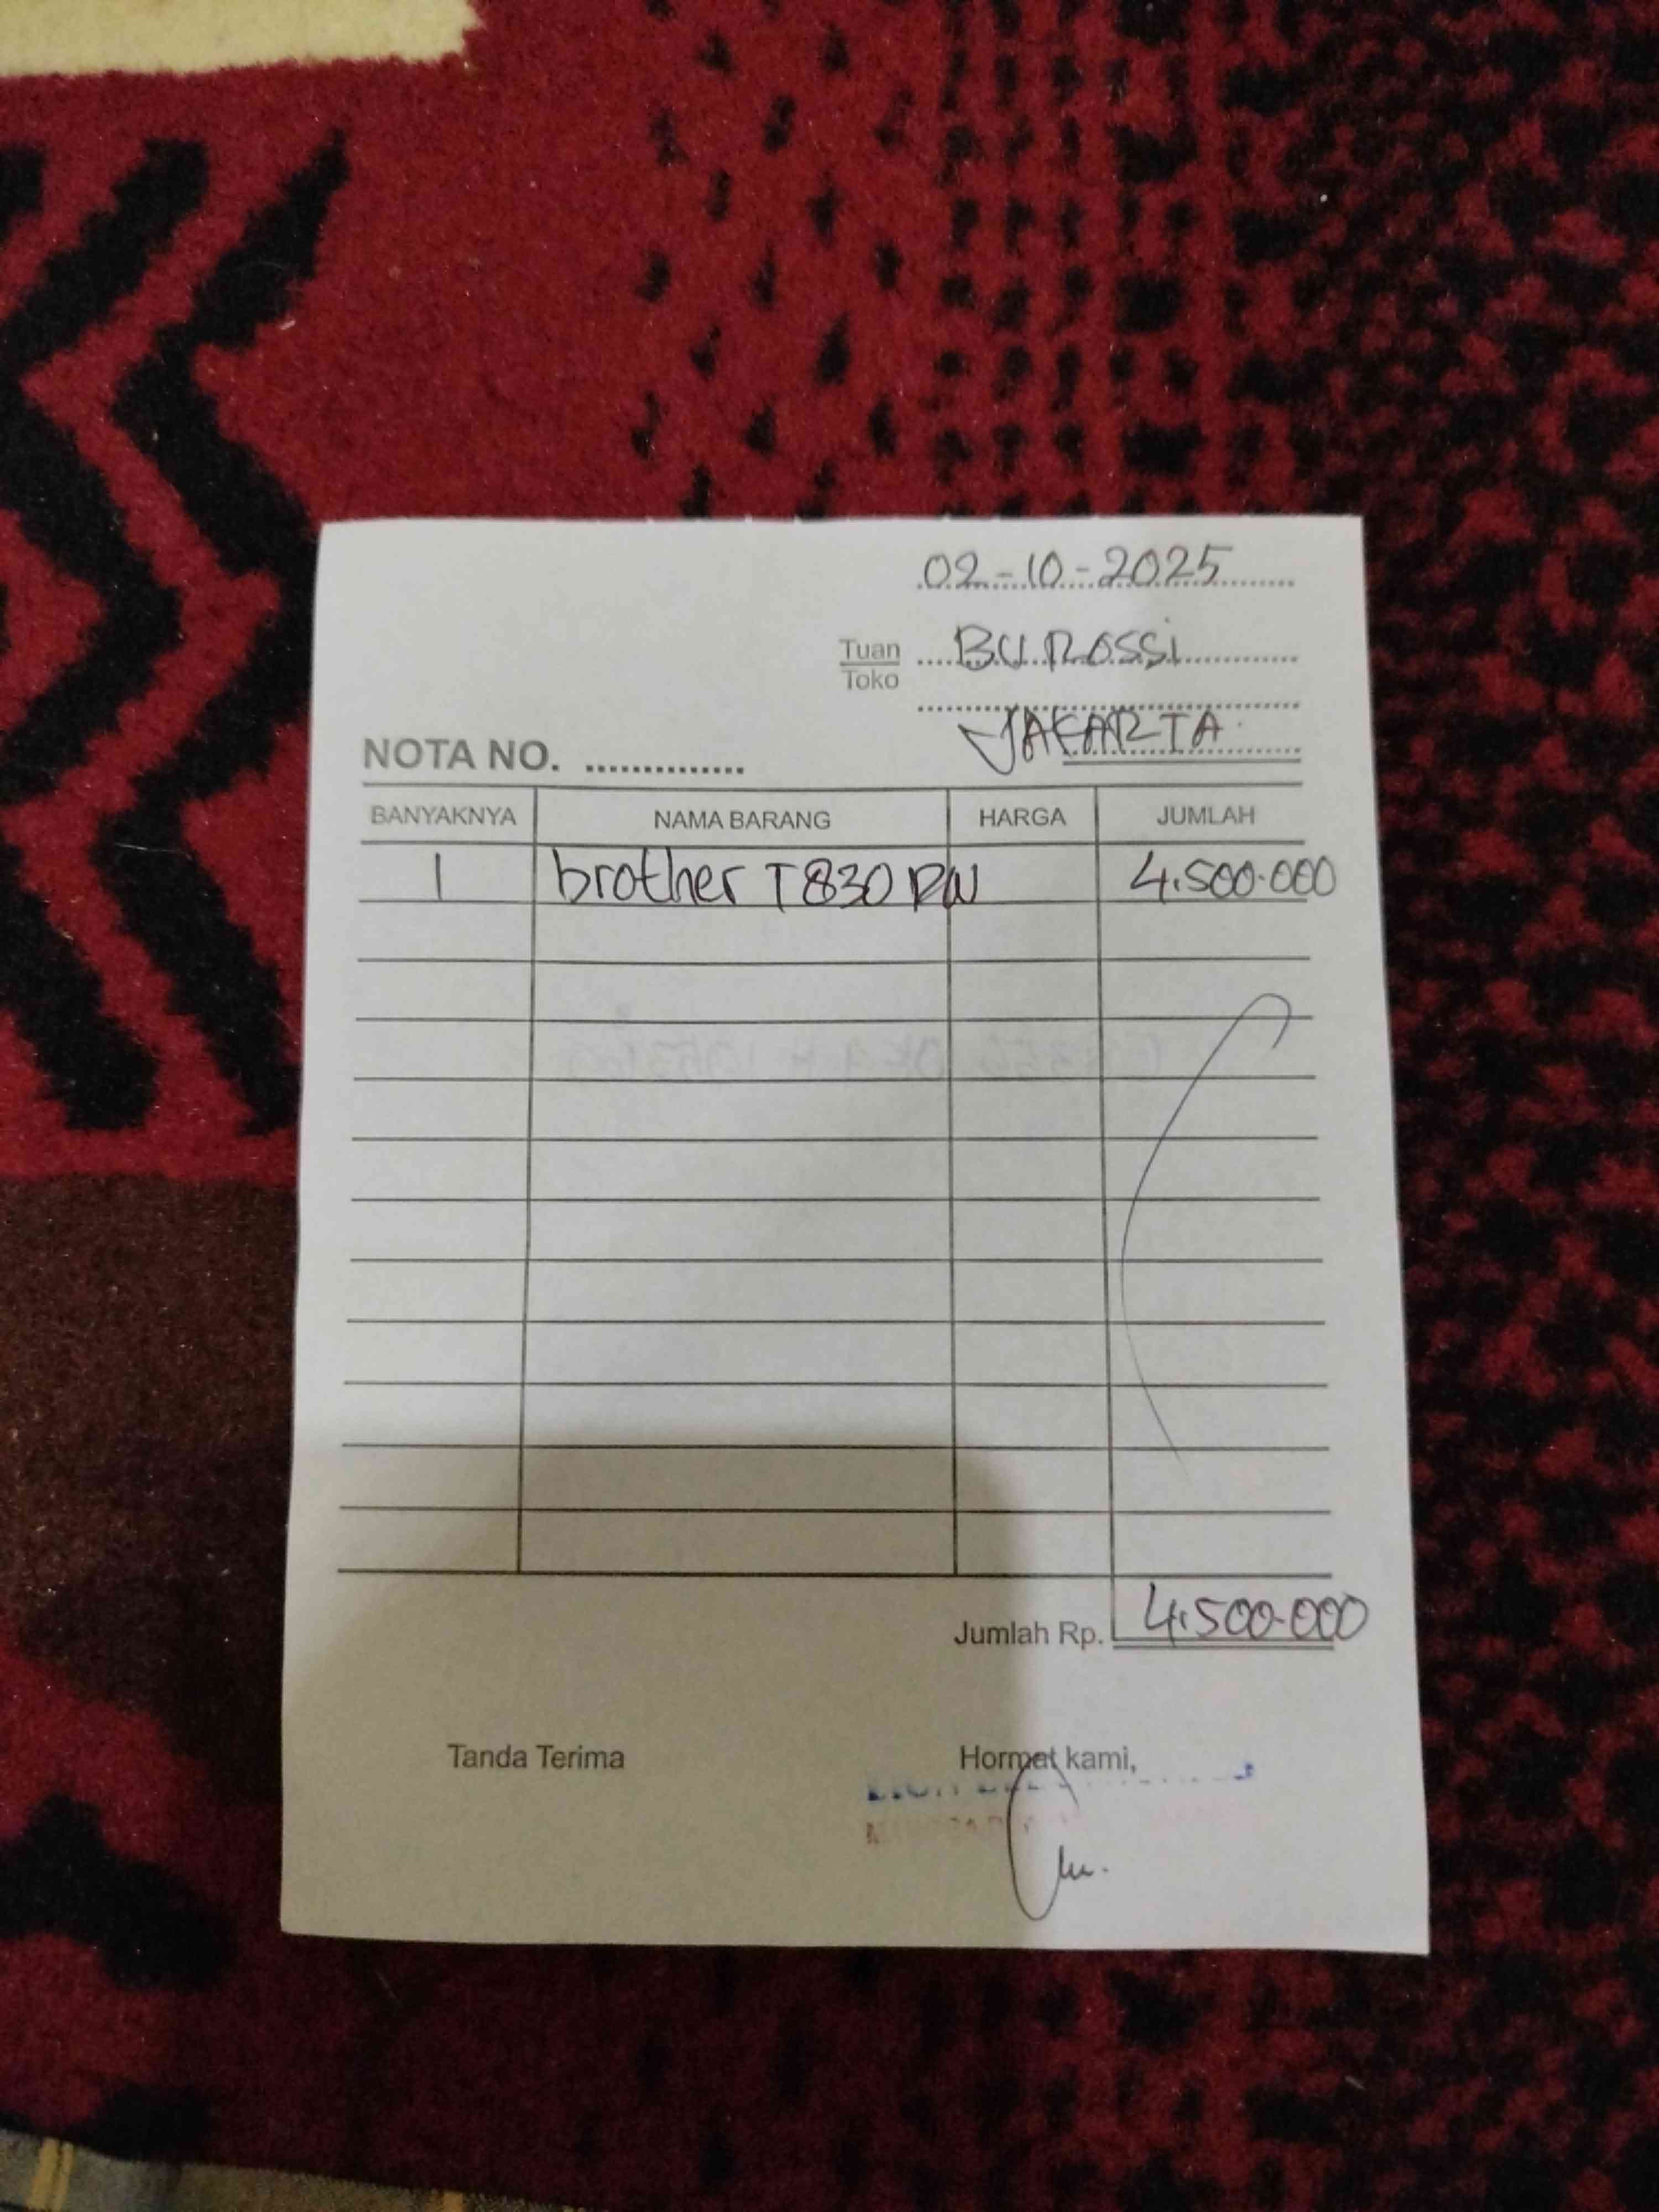 02-10-2025
Tuan BU ROSSi
Toko
JAKARTA.
NOTA NO. ..............
BANYAKNYA NAMA BARANG HARGA JUMLAH
1 brother T830 DW 4.500.000
Jumlah Rp. 4.500.000
Tanda Terima Hormat kami,